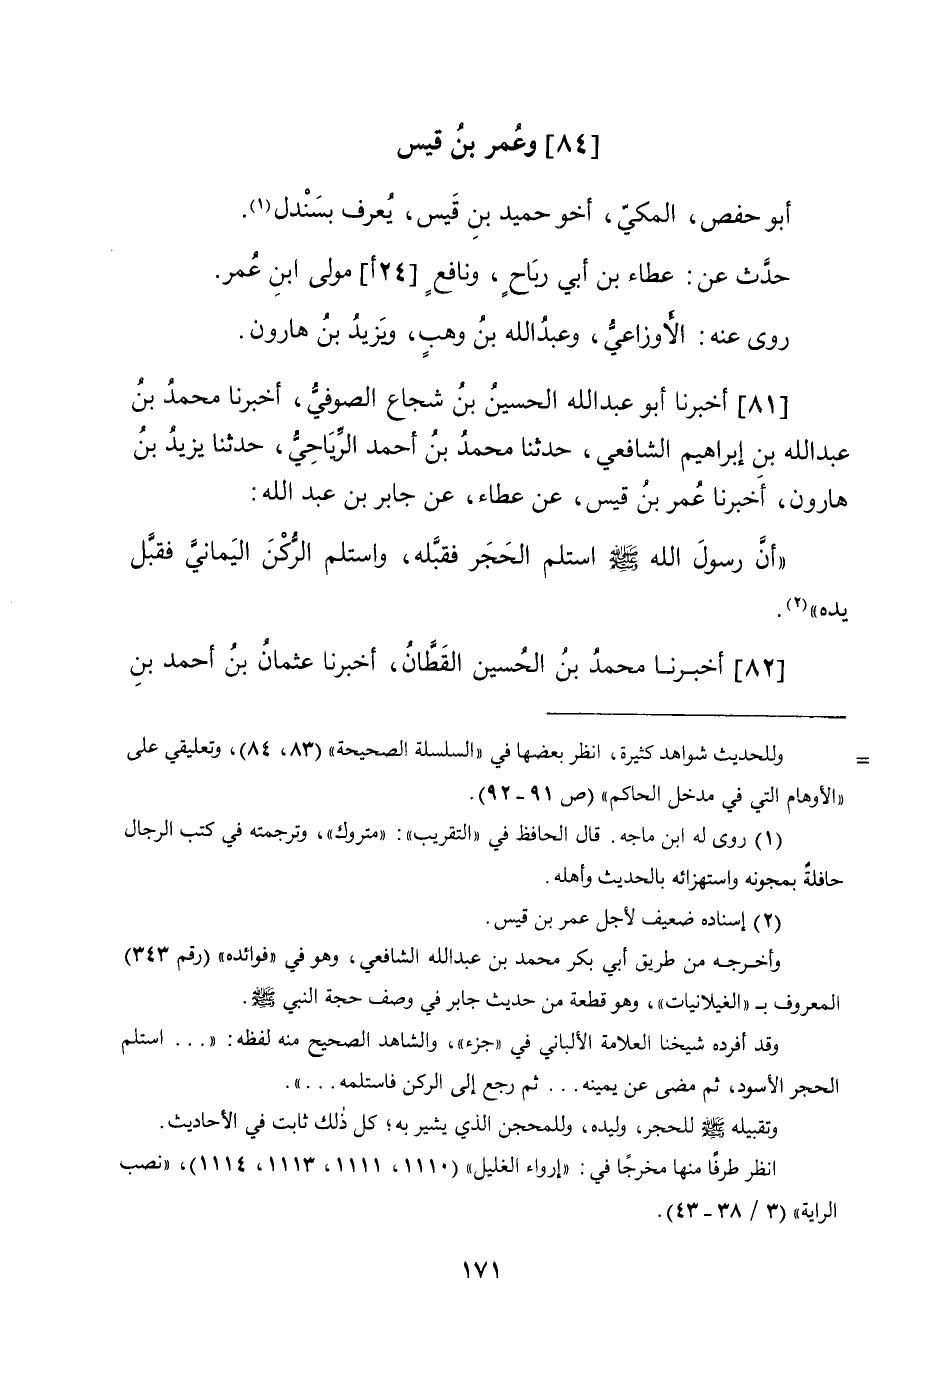 [٨٤] وعُمر بنُ قيس
أبو حفص، المكيّ، أخو حميد بنِ قَيس، يُعرف بسَنْدل(١).
حدَّث عن: عطاء بن أبي ربَاحٍ، ونافعٍ [٢٤أ] مولى ابنِ عُمر.
روى عنه: الأوزاعيُّ، وعبدُالله بنُ وهبٍ، ويَزيدُ بنُ هارون.
[٨١] أخبرنا أبو عبدالله الحسينُ بنُ شجاع الصوفيُّ، أخبرنا محمدُ بنُ
عبدالله بنِ إبراهيم الشافعي، حدثنا محمدُ بنُ أحمد الرِّيَاحِيُّ، حدثنا يزيدُ بنُ
هارون، أخبرنا عُمر بنُ قيس، عن عطاء، عن جابر بن عبد الله:
«أنَّ رسولَ الله ﷺ استلم الحَجَر فقبَّله، واستلم الرُّكْنَ اليَمانيَّ فقبَّل
يده»(٢).
[٨٢] أخبرنا محمدُ بنُ الحُسين القَطَّانُ، أخبرنا عثمانُ بنُ أحمد بنِ
= وللحديث شواهد كثيرة، انظر بعضها في «السلسلة الصحيحة» (٨٣، ٨٤)، وتعليقي على
«الأوهام التي في مدخل الحاكم» (ص ٩١ - ٩٢).
(١) روى له ابن ماجه. قال الحافظ في «التقريب»: «متروك»، وترجمته في كتب الرجال
حافلةٌ بمجونه واستهزائه بالحديث وأهله.
(٢) إسناده ضعيف لأجل عمر بن قيس.
وأخرجه من طريق أبي بكر محمد بن عبدالله الشافعي، وهو في «فوائده» (رقم ٣٤٣)
المعروف بـ «الغيلانيات»، وهو قطعة من حديث جابر في وصف حجة النبي ﷺ.
وقد أفرده شيخنا العلامة الألباني في «جزء»، والشاهد الصحيح منه لفظه: «... استلم
الحجر الأسود، ثم مضى عن يمينه... ثم رجع إلى الركن فاستلمه...».
وتقبيله ﷺ للحجر، وليده، وللمحجن الذي يشير به؛ كل ذٰلك ثابت في الأحاديث.
انظر طرفًا منها مخرجًا في: «إرواء الغليل» (١١١٠، ١١١١، ١١١٣، ١١١٤)، «نصب
الراية» (٣ / ٣٨ - ٤٣).
١٧١